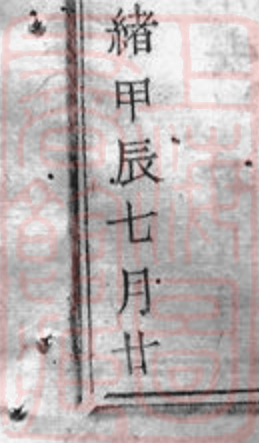 緒甲辰七月廿